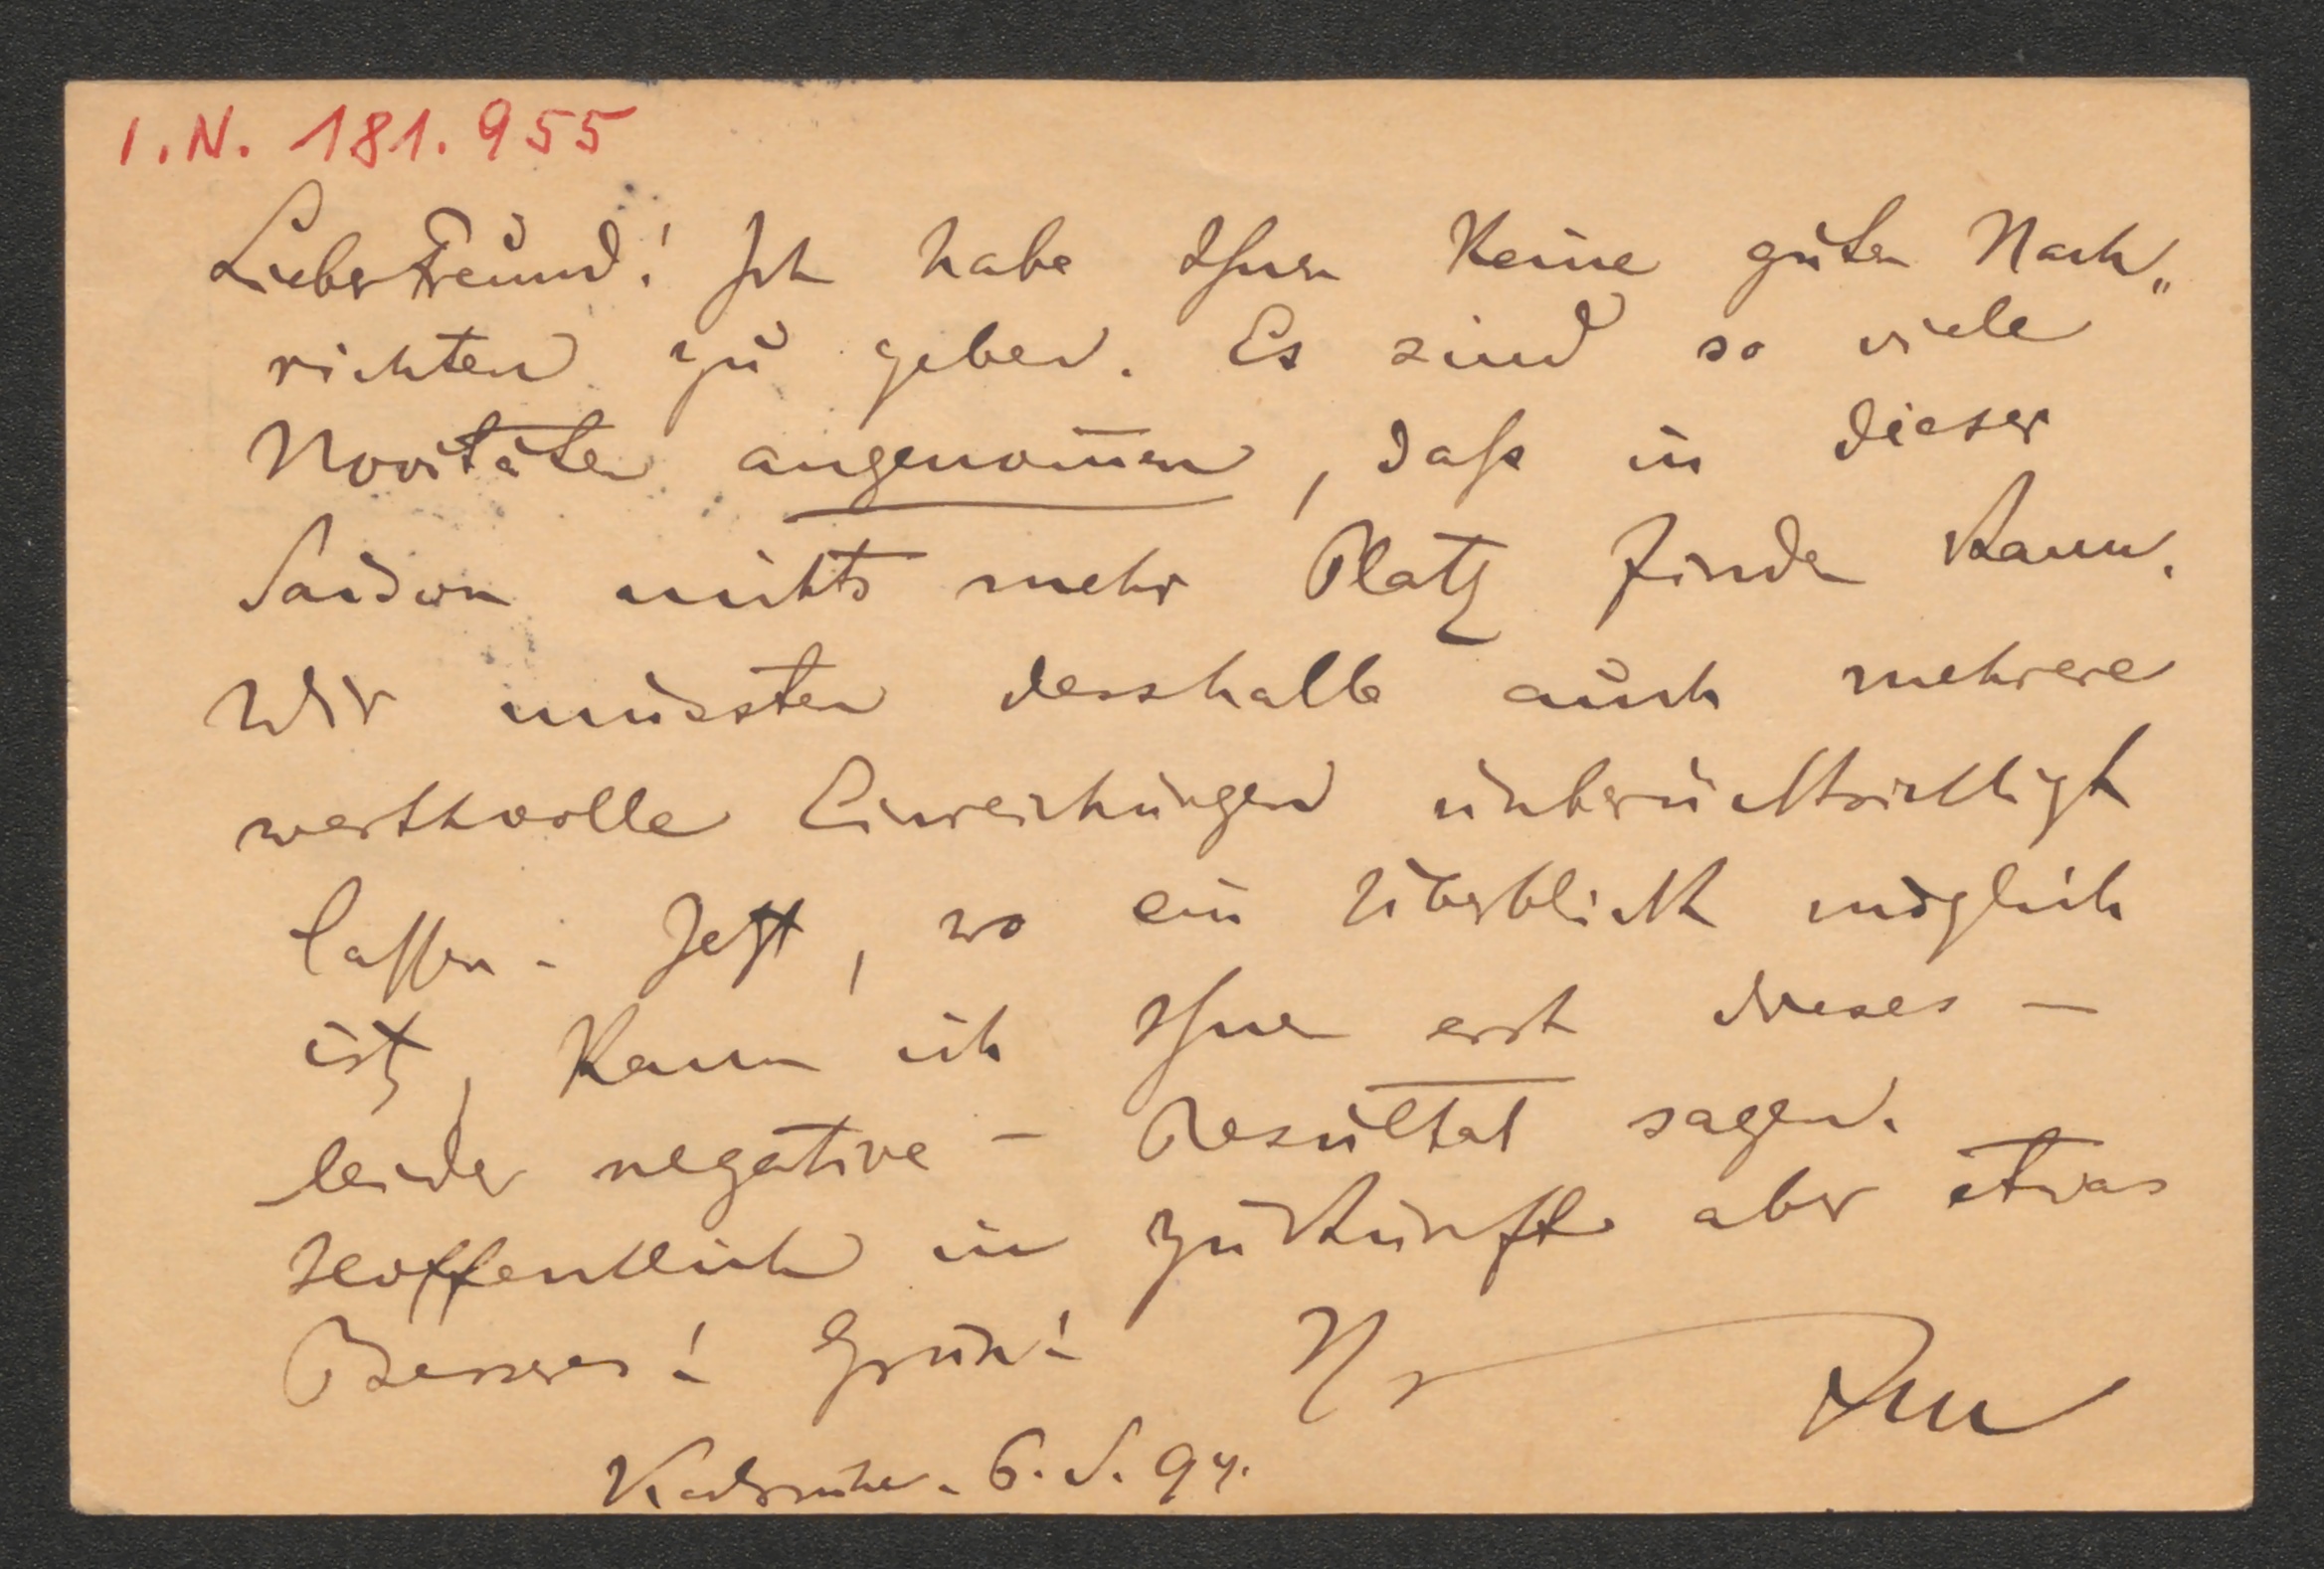 I.N. 181.955
Lieber Freund! Ich habe Ihnen keine guten Nach„
richten zu geben. Es sind so viele
Novitäten angenom̅en, daß in dieser
Saison nichts mehr Platz finden kann.
Wir mussten desshalb auch mehrere
werthvolle Einreichungen unberücksichtigt
lassen. Jetzt, wo ein Überblick möglich
ist, kann ich Ihnen erst dieses —
leider negative — Resultat sagen.
Hoffentlich in Zukunft aber etwas
Besseres! Gruss! Ihr
Karlsruhe. 6. 5. 94.